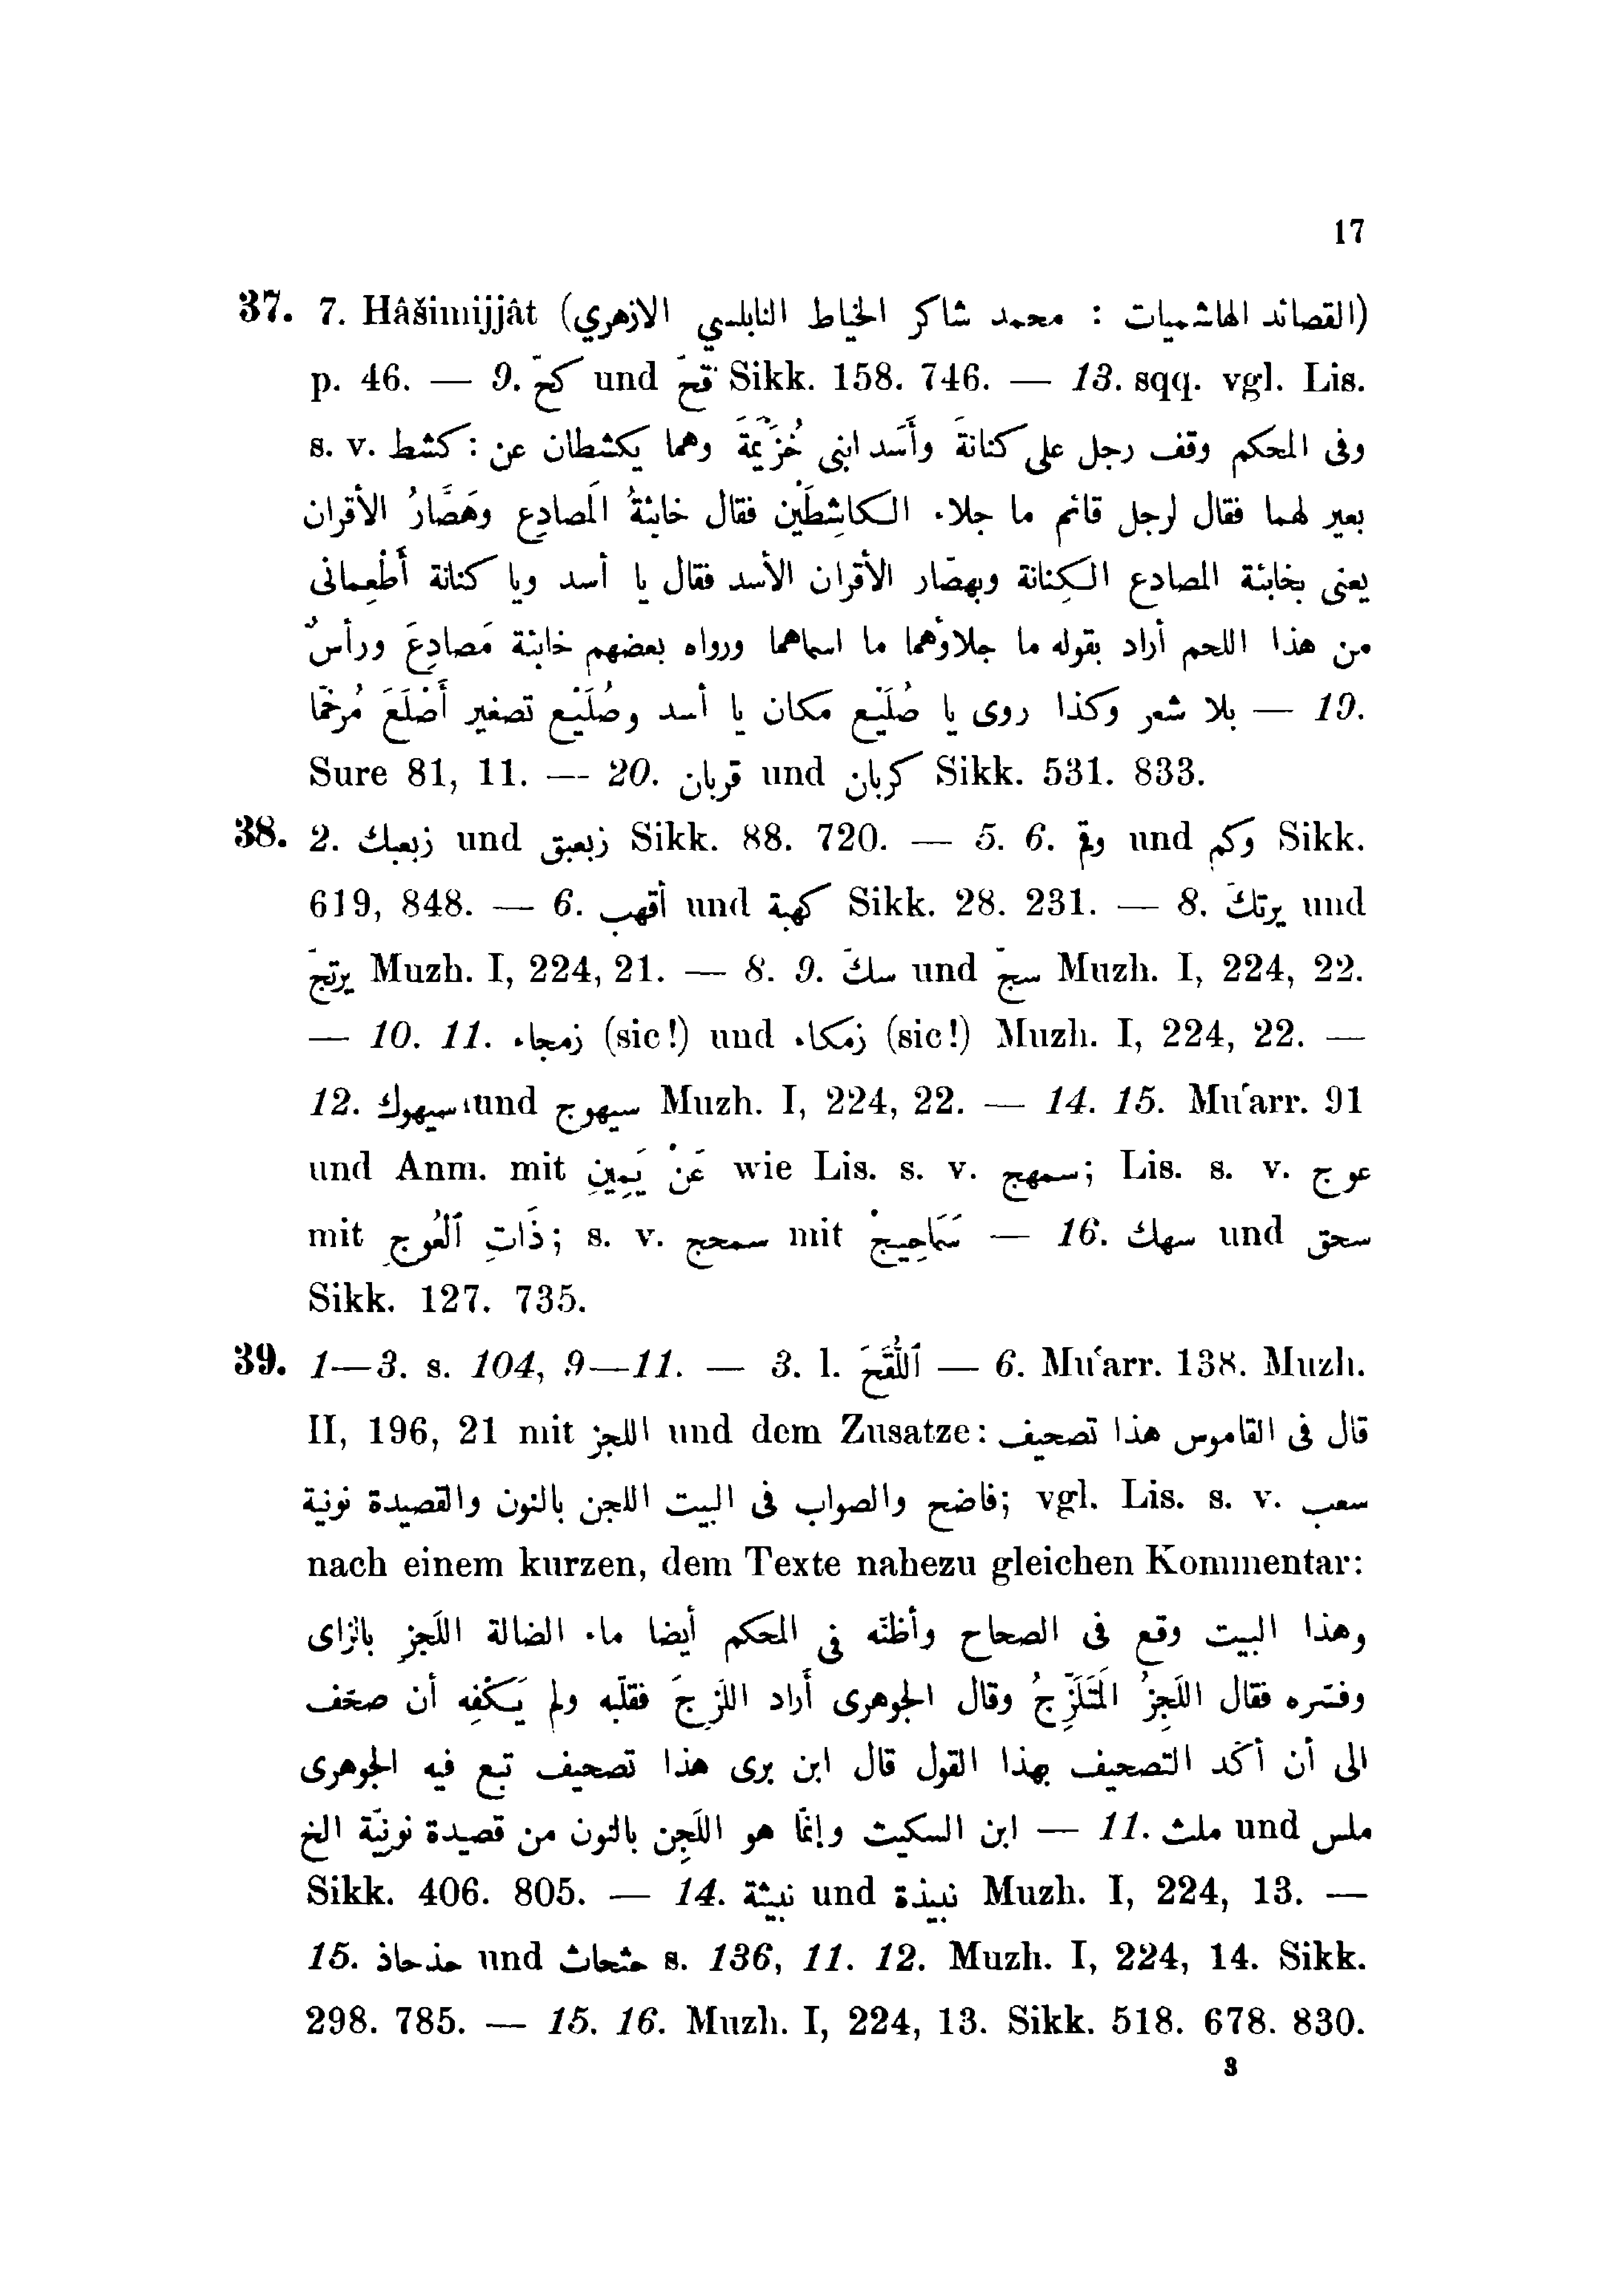 17
37. 7. Hâšimijjât (القصائد الهاشميات : محمد شاكر الخياط النابلسي الازهري)
p. 46. — 9. كحّ und قحّ Sikk. 158. 746. — 13. sqq. vgl. Lis.
s. v. كشط: وفى المحكم وقف رجل على كنانة وأسد ابنى خُزَيْمَة وهما يكشطان عن
بعير لهما فقال لرجل قائم ما جلاء الكاشِطَيْن فقال خابئةُ المَصادِع وهَصَّارُ الأقران
يعنى بخابئة المصادع الكِنانة وبهصّار الأقران الأسد فقال يا أسد ويا كنانة أَطْعِمانى
من هذا اللحم أراد بقوله ما جلاؤهما ما اسماهما ورواه بعضهم خابئة مَصادِعَ ورأسٌ
بلا شعر وكذا روى يا صُلَيْع مكان يا أسد وصُلَيْع تصغير أَصْلَعَ مُرخّما — 19.
Sure 81, 11. — 20. قربان und كربان Sikk. 531. 833.
38. 2. زبعبك und زبعبق Sikk. 88. 720. — 5. 6. وقم und وكم Sikk.
619, 848. — 6. أقهب und كهبة Sikk. 28. 231. — 8. يرتكّ und
يرتجّ Muzh. I, 224, 21. — 8. 9. سكّ und سجّ Muzh. I, 224, 22.
— 10. 11. زمجاء (sic!) und زمكاء (sic!) Muzh. I, 224, 22. —
12. سيهوك und سيهوج Muzh. I, 224, 22. — 14. 15. Muʿarr. 91
und Anm. mit عَنْ يَمِينِ wie Lis. s. v. سمهج; Lis. s. v. عوج
mit ذَاتِ ٱلْعُوجِ; s. v. سمحج mit سَمَاحِيجْ — 16. سهك und سحق
Sikk. 127. 735.
39. 1—3. s. 104, 9—11. — 3. l. ٱللُّقَّحَ — 6. Muʿarr. 138. Muzh.
II, 196, 21 mit اللجز und dem Zusatze: قال فى القاموس هذا تصحيف
فاضح والصواب فى البيت اللجن بالنون والقصيدة نونية; vgl. Lis. s. v. سعب
nach einem kurzen, dem Texte nahezu gleichen Kommentar:
وهذا البيت وقع فى الصحاح وأظنّه فى المحكم أيضا ماء الضالة اللَّجِز بالزاى
وفسّره فقال اللَّجِزُ المُتَلَزِّجُ وقال الجوهرى أراد اللَّزِجَ فقلبه ولم يَكْفِه أن صحّف
الى أن أكّد التصحيف بهذا القول قال ابن برى هذا تصحيف تبع فيه الجوهرى
ابن السكيت وإنّما هو اللَّجِن بالنون من قصيدة نونيّة الخ — 11. ملث und ملس
Sikk. 406. 805. — 14. نبيثة und نبيذة Muzh. I, 224, 13. —
15. حذحاذ und حثحاث s. 136, 11. 12. Muzh. I, 224, 14. Sikk.
298. 785. — 15. 16. Muzh. I, 224, 13. Sikk. 518. 678. 830.
3